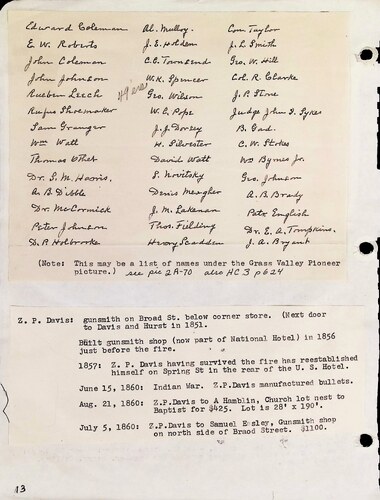 Edward Coleman Al. Mulloy. Com Taylor
E. W. Roberts J. E. Holden J. L. Smith
John Coleman C. C. Townsend Geo. W. Hill
John Johnson W. K. Spencer Col. R. Clarke
Rueben Leech 49 ers Geo. Wilson J. P. Stone
Rufus Shoemaker W. C. Pope Judge John I. Sykes
Sam Granger J. J. Dorsey B. Gad.
Wm Watt H. Silvester C. W. Stokes
Thomas Othet David Watt Wm Byrnes Jr.
Dr. S. M. Harris. S. Novitsky Geo. Johnson
A. B. Dibble Denis Meagher A. B. Brady
Dr. McCormick J. M. Lakenan Pete English
Peter Johnson Thos. Fielding Dr. E. A. Tompkins.
D. P. Holbrooke Henry Scadden J. A. Bryant
(Note: This may be a list of names under the Grass Valley Pioneer
picture.) see pic 2A-70 also HC 3 p 624
Z. P. Davis: gunsmith on Broad St. below corner store. (Next door
to Davis and Hurst in 1851.
Built gunsmith shop (now part of National Hotel) in 1856
just before the fire.
1857: Z. P. Davis having survived the fire has reestablished
himself on Spring St in the rear of the U. S. Hotel.
June 15, 1860: Indian War. Z.P.Davis manufactured bullets.
Aug. 21, 1860: Z.P.Davis to A Hamblin, Church lot nest to
Baptist for $425. Lot is 28' x 190'.
July 5, 1860: Z.P.Davis to Samuel Ensley, Gunsmith shop
on north side of Braod Street. $1100.
13